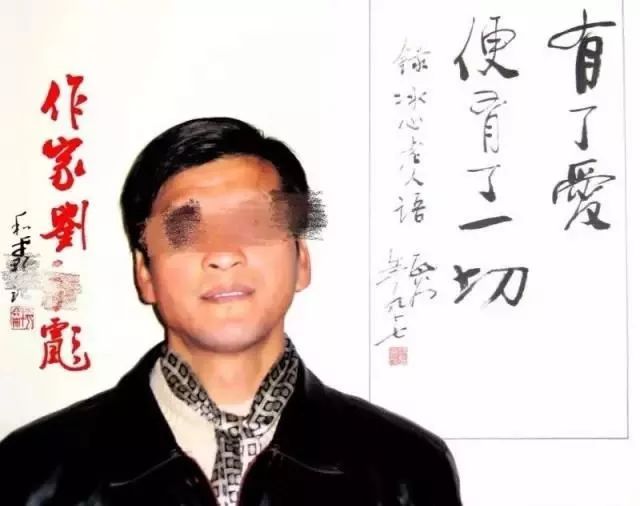 有了愛
便有了一切
錄冰心老人語
年九十七
作家劉彪